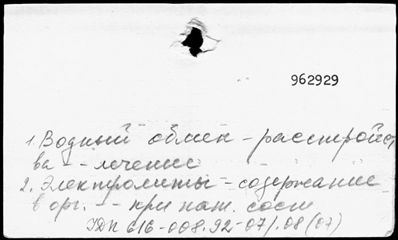 962929
1 Водный обмен - расстройст
ва - - лечение
2. Электролиты - содержание
в орг. - - при пат. сост
УДК 616-008.92-07/.08(07)